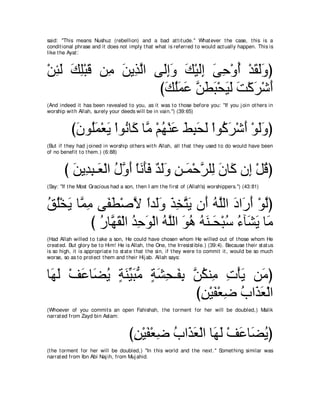 said: "This means Nushuz (rebellion) and a bad attitude.'' Whatever the case, this is a
conditional phrase and it does not imply that what is referred to would actually happen. This is
like the Ayat:
وَلَقَدْ أُوحِىَ إِلَيْكَ وَإِلَى الَّذِينَ مِن قَبْلِكَ لَئِنْ)
(أَشْرَكْتَ لَيَحْبَطَنَّ عَمَلُكَ
(And indeed it has been revealed to you, as it was to those before you: "If you join others in
worship with Allah, surely your deeds will be in vain.'') (39:65)
(وَلَوْ أَشْرَكُواْ لَحَبِطَ عَنْهُمْ مَّا كَانُواْ يَعْمَلُونَ)
(But if they had joined in worship others with Allah, all that they used to do would have been
of no benefit to them.) (6:88)
(قُلْ إِن كَانَ لِلرَّحْمَـنِ وَلَدٌ فَأَنَاْ أَوَّلُ الْعَـبِدِينَ )
(Say: "If the Most Gracious had a son, then I am the first of (Allah's) worshippers.'') (43:81)
(لَّوْ أَرَادَ اللَّهُ أَن يَتَّخِذَ وَلَداً لاَّصْطَفَى مِمَّا يَخْلُقُ
مَا يَشَآءُ سُبْحَـنَهُ هُوَ اللَّهُ الْوَحِدُ الْقَهَّارُ )
(Had Allah willed to take a son, He could have chosen whom He willed out of those whom He
created. But glory be to Him! He is Allah, the One, the Irresistible.) (39:4). Because their status
is so high, it is appropriate to state that the sin, if they were to commit it, would be so much
worse, so as to protect them and their Hijab. Allah says:
(مَن يَأْتِ مِنكُنَّ بِفَـحِشَةٍ مُّبَيِّنَةٍ يُضَاعَفْ لَهَا
الْعَذَابُ ضِعْفَيْنِ)
(Whoever of you commits an open Fahishah, the torment for her will be doubled,) Malik
narrated from Zayd bin Aslam:
(يُضَاعَفْ لَهَا الْعَذَابُ ضِعْفَيْنِ)
(the torment for her will be doubled,) "In this world and the next.'' Something similar was
narrated from Ibn Abi Najih, from Mujahid.